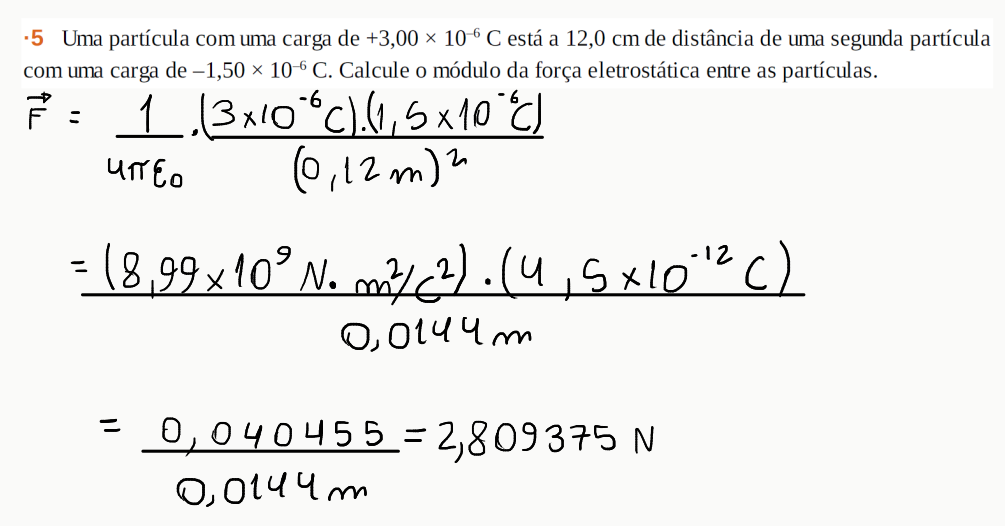 ·5 Uma partícula com uma carga de +3,00 × 10⁻⁶ C está a 12,0 cm de distância de uma segunda partícula
com uma carga de –1,50 × 10⁻⁶ C. Calcule o módulo da força eletrostática entre as partículas.
F⃗ = 1/(4πε₀) · (3×10⁻⁶C).(1,5×10⁻⁶C)
(0,12m)²
= (8,99×10⁹ N. m²/C²) · (4,5×10⁻¹² C)
0,0144m
= 0,040455 = 2,809375 N
0,0144m